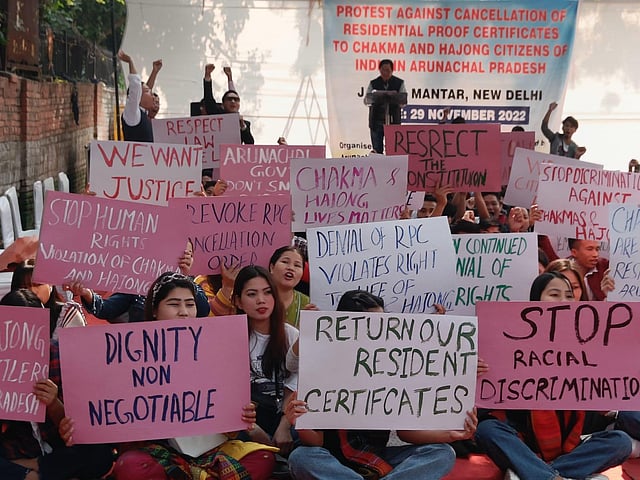 PROTEST AGAINST CANCELLATION OF
RESIDENTIAL PROOF CERTIFICATES
TO CHAKMA AND HAJONG CITIZENS OF
IN ARUNACHAL PRADESH
MANTAR, NEW DELHI
: 29 NOVEMBER 2022
Organise
RESPECT
WE WANT
JUSTICE
ARUNACHAL
GOV
RESRECT
THE
CONSTITUTION
CHAKMA &
HAJONG
LIVES MATTER
STOP DISCRIMINAT
AGAINST
HAJONG
STOP HUMAN
RIGHTS
VIOLATION OF CHAKMA
AND HAJONG
REVOKE RPC
ORDER
DENIAL OF RPC
VIOLATES RIGHT
TO LIFE OF
HAJONG
CONTINUED
OF
RIGHTS
DIGNITY
NON
NEGOTIABLE
RETURN OUR
RESIDENT
CERTIFCATES
STOP
RACIAL
DISCRIMINATIO